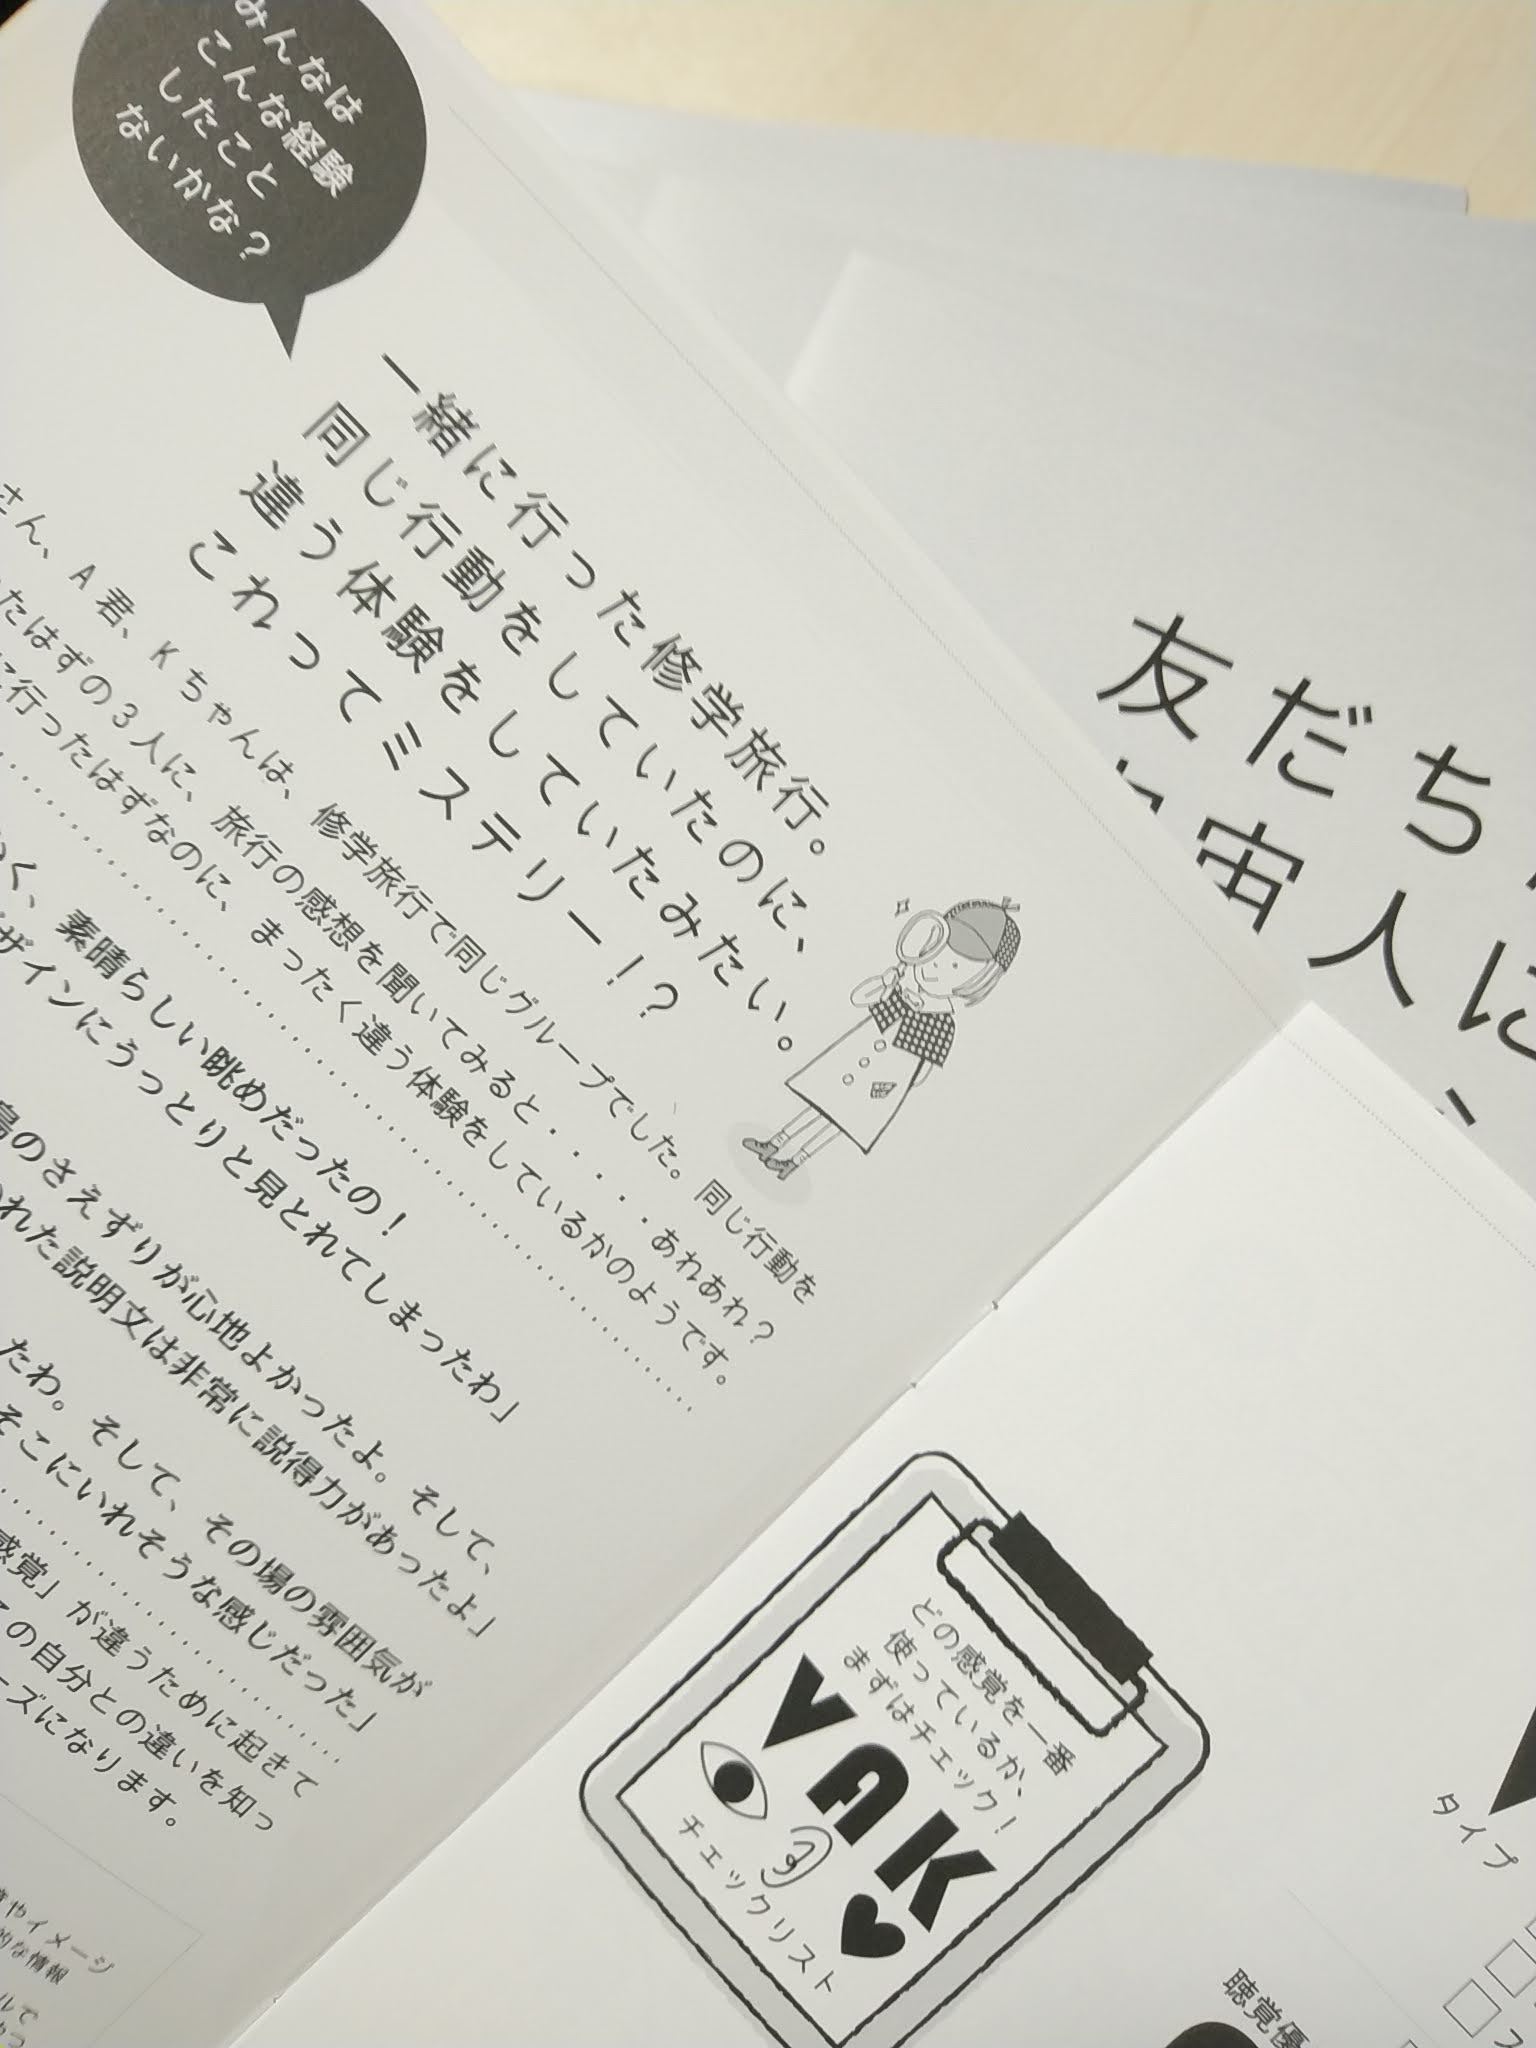 みんなは
こんな経験
したこと
ないかな？
一緒に行った修学旅行。
同じ行動をしていたのに、
違う体験をしていたみたい。
これってミステリー！？
さん、A君、Kちゃんは、修学旅行で同じグループでした。同じ行動を
たはずの3人に、旅行の感想を聞いてみると・・・・・あれあれ？
に行ったはずなのに、まったく違う体験をしているかのようです。
く、素晴らしい眺めだったの！
ザインにうっとりと見とれてしまったわ」
鳥のさえずりが心地よかったよ。そして、
れた説明文は非常に説得力があったよ」
たわ。そして、その場の雰囲気が
そこにいれそうな感じだった」
感覚」が違うために起きて
の自分との違いを知っ
ーズになります。
やイメージ
的な情報
友だち
宙人に
どの感覚を一番
使っているか、
まずはチェック！
VAK
チェックリスト
タイプ
聴覚優